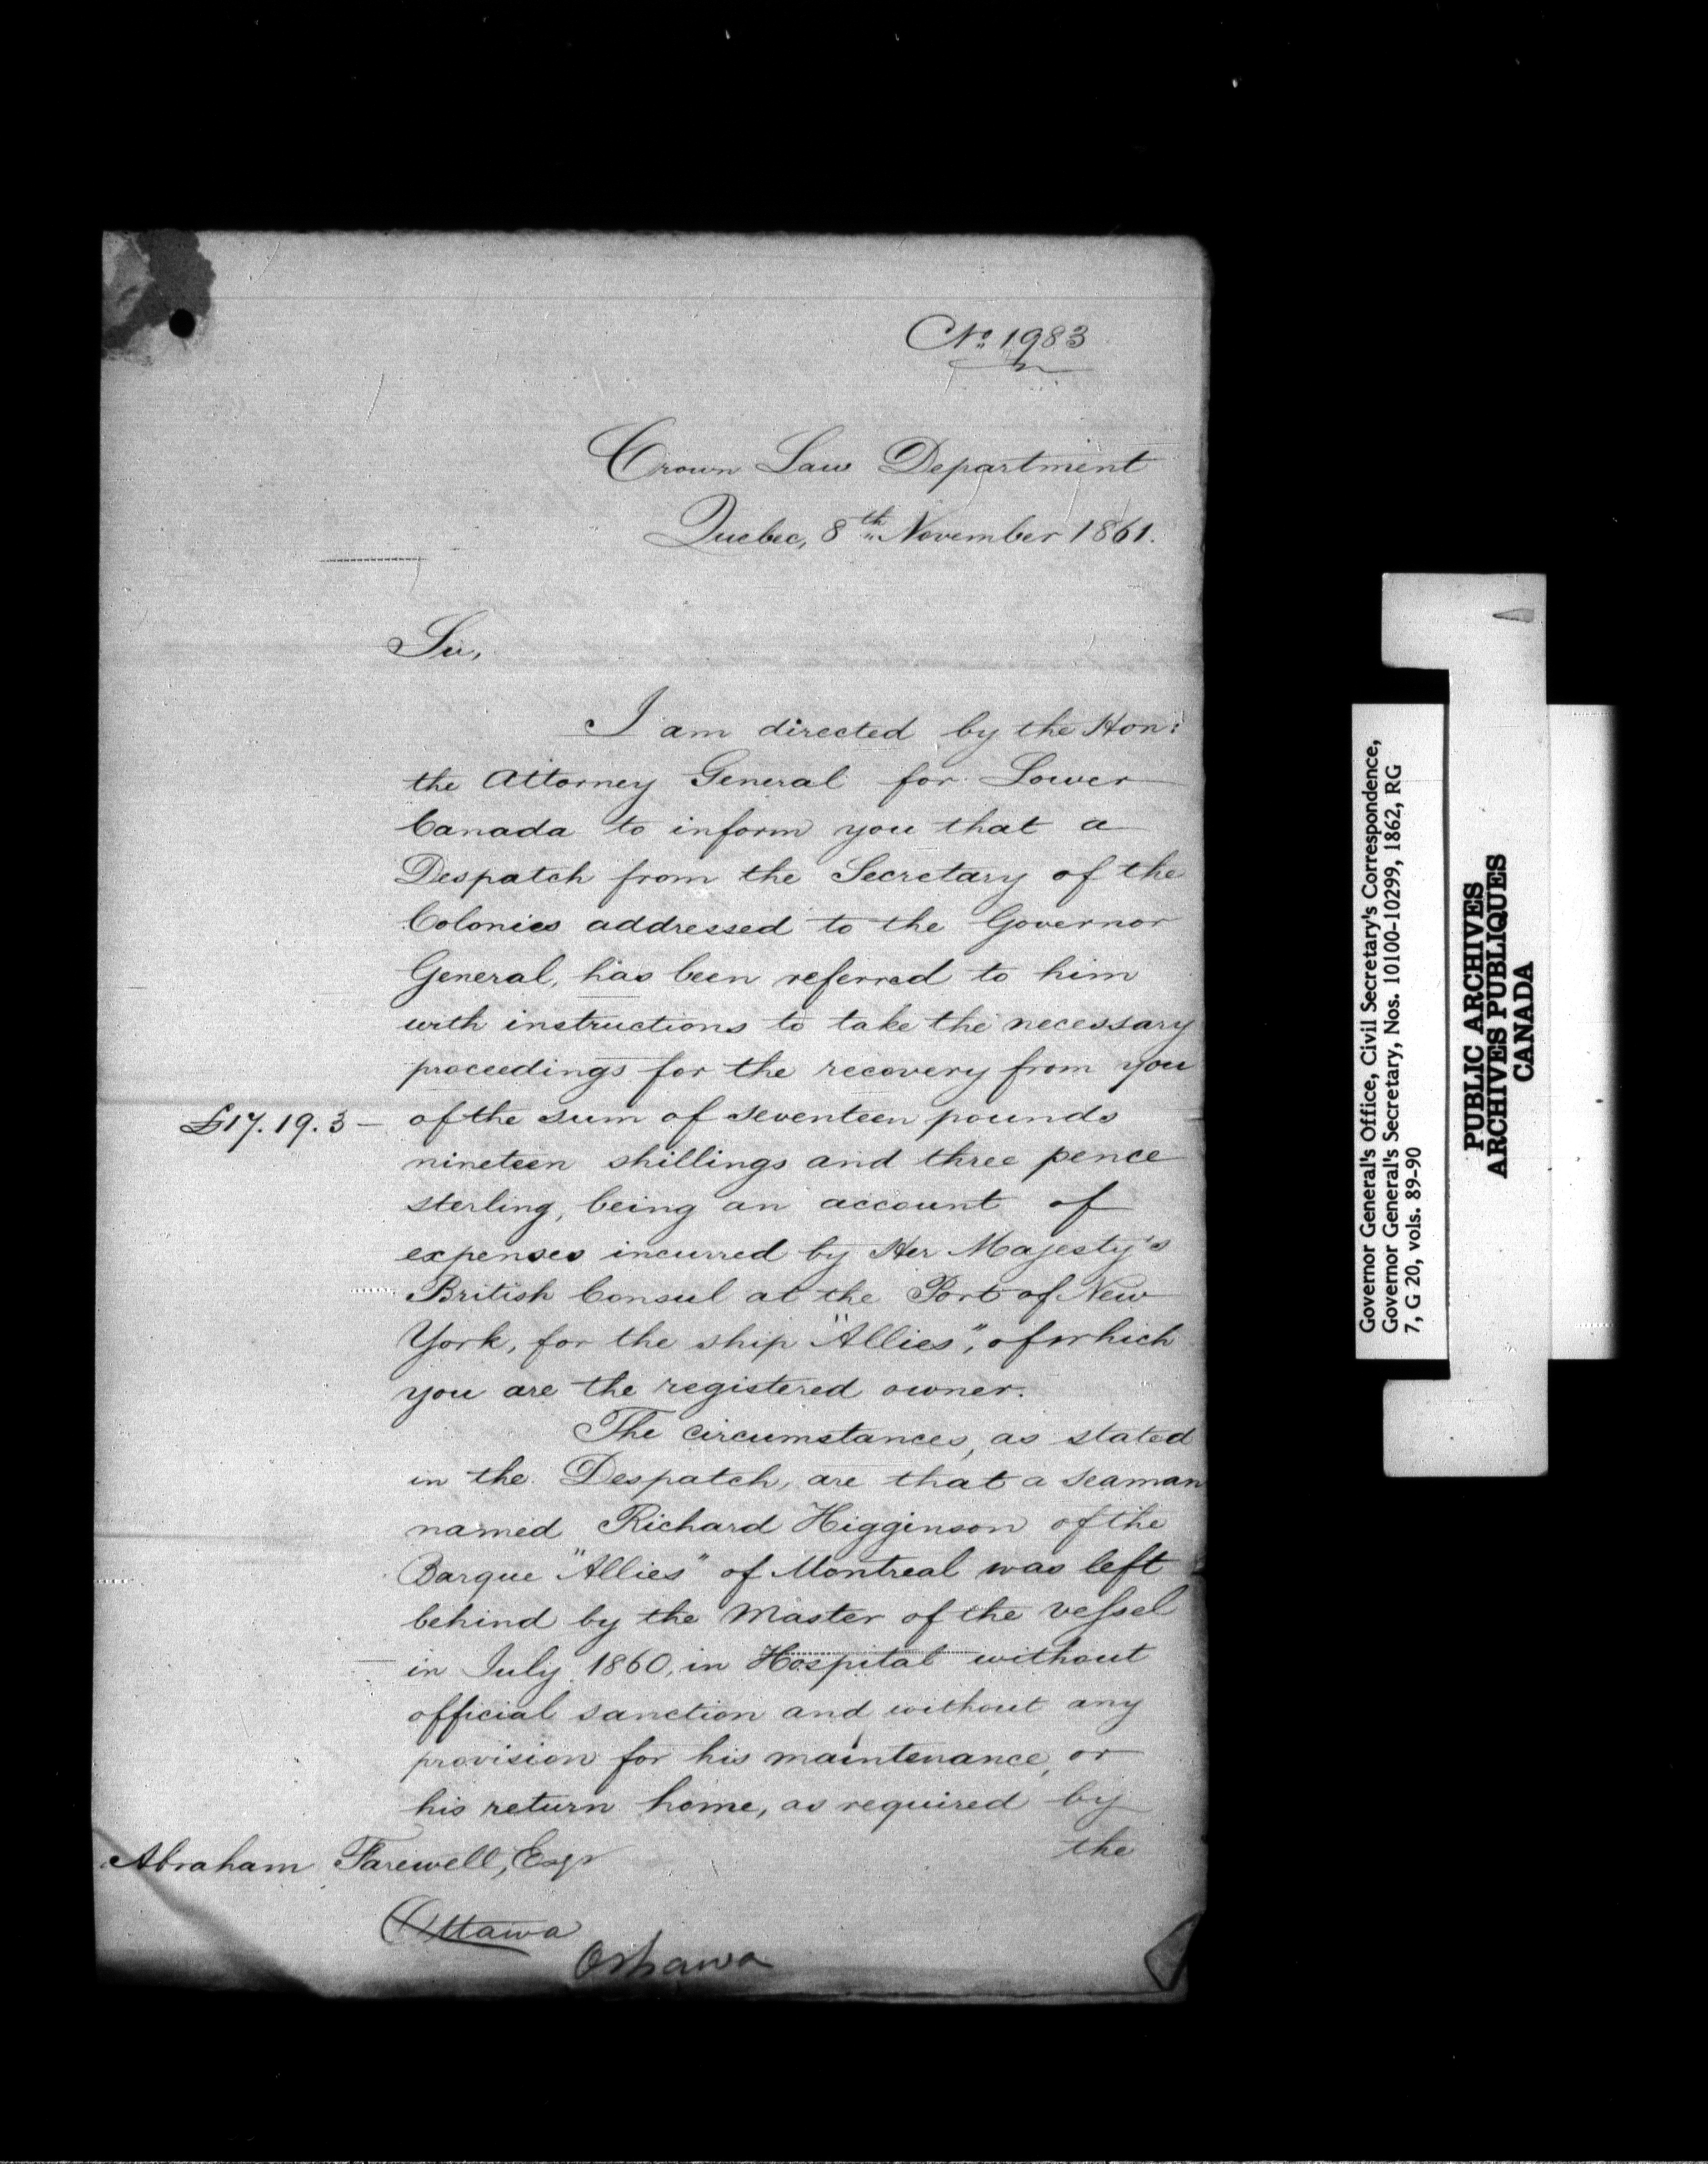 No. 1983
Crown Law Department
Quebec, 8th November 1861.
Sir,
I am directed by the Hon:
the Attorney General for Lower
Canada to inform you that a
Despatch from the Secretary of the
Colonies addressed to the Governor
General, has been referred to him
with instructions to take the necessary
proceedings for the recovery from you
£17. 19. 3 — of the sum of seventeen pounds
nineteen shillings and three pence
sterling, being an account of
expenses incurred by Her Majesty's
British Consul at the Port of New
York, for the ship "Allies", of which
you are the registered owner.
The circumstances, as stated
in the Despatch, are that a seaman
named Richard Higginson of the
Barque "Allies" of Montreal was left
behind by the Master of the vessel
in July 1860, in Hospital without
official sanction and without any
provision for his maintenance, or
his return home, as required by
the
Abraham Farewell, Esqr
Ottawa
Oshawa
Governor General's Office, Civil Secretary's Correspondence,
Governor General's Secretary, Nos. 10100-10299, 1862, RG
7, G 20, vols. 89-90
PUBLIC ARCHIVES
ARCHIVES PUBLIQUES
CANADA